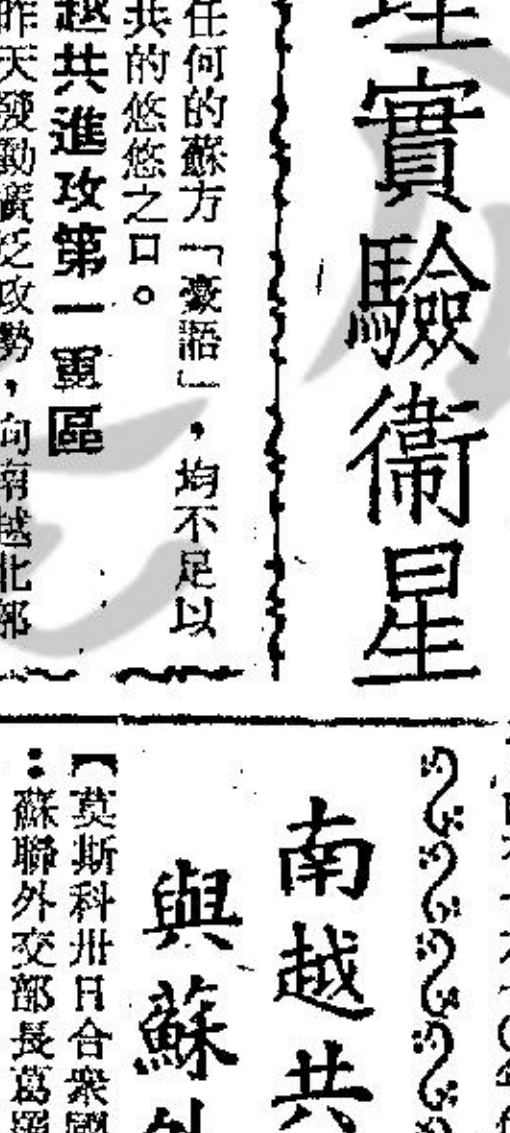 理實驗衛星
任何的蘇方「豪語」,均不足以
共的悠悠之口。
越共進攻第一軍區
昨天發動廣泛攻勢,向南越北部
南越共
與蘇外
【莫斯科卅日合衆國
:蘇聯外交部長葛羅